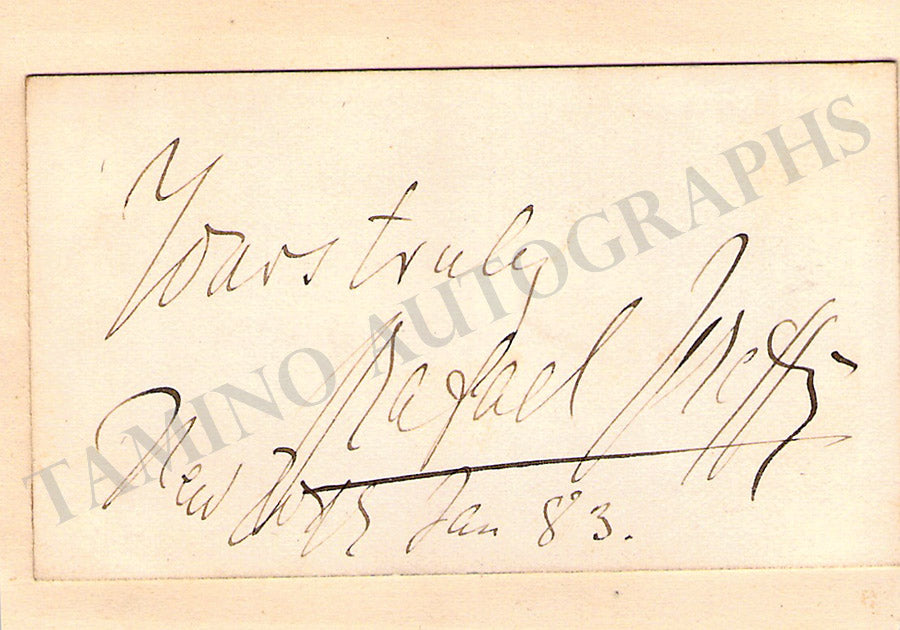 Yours truly
Rafael Joseffy
New York Jan 83.
TAMINO AUTOGRAPHS